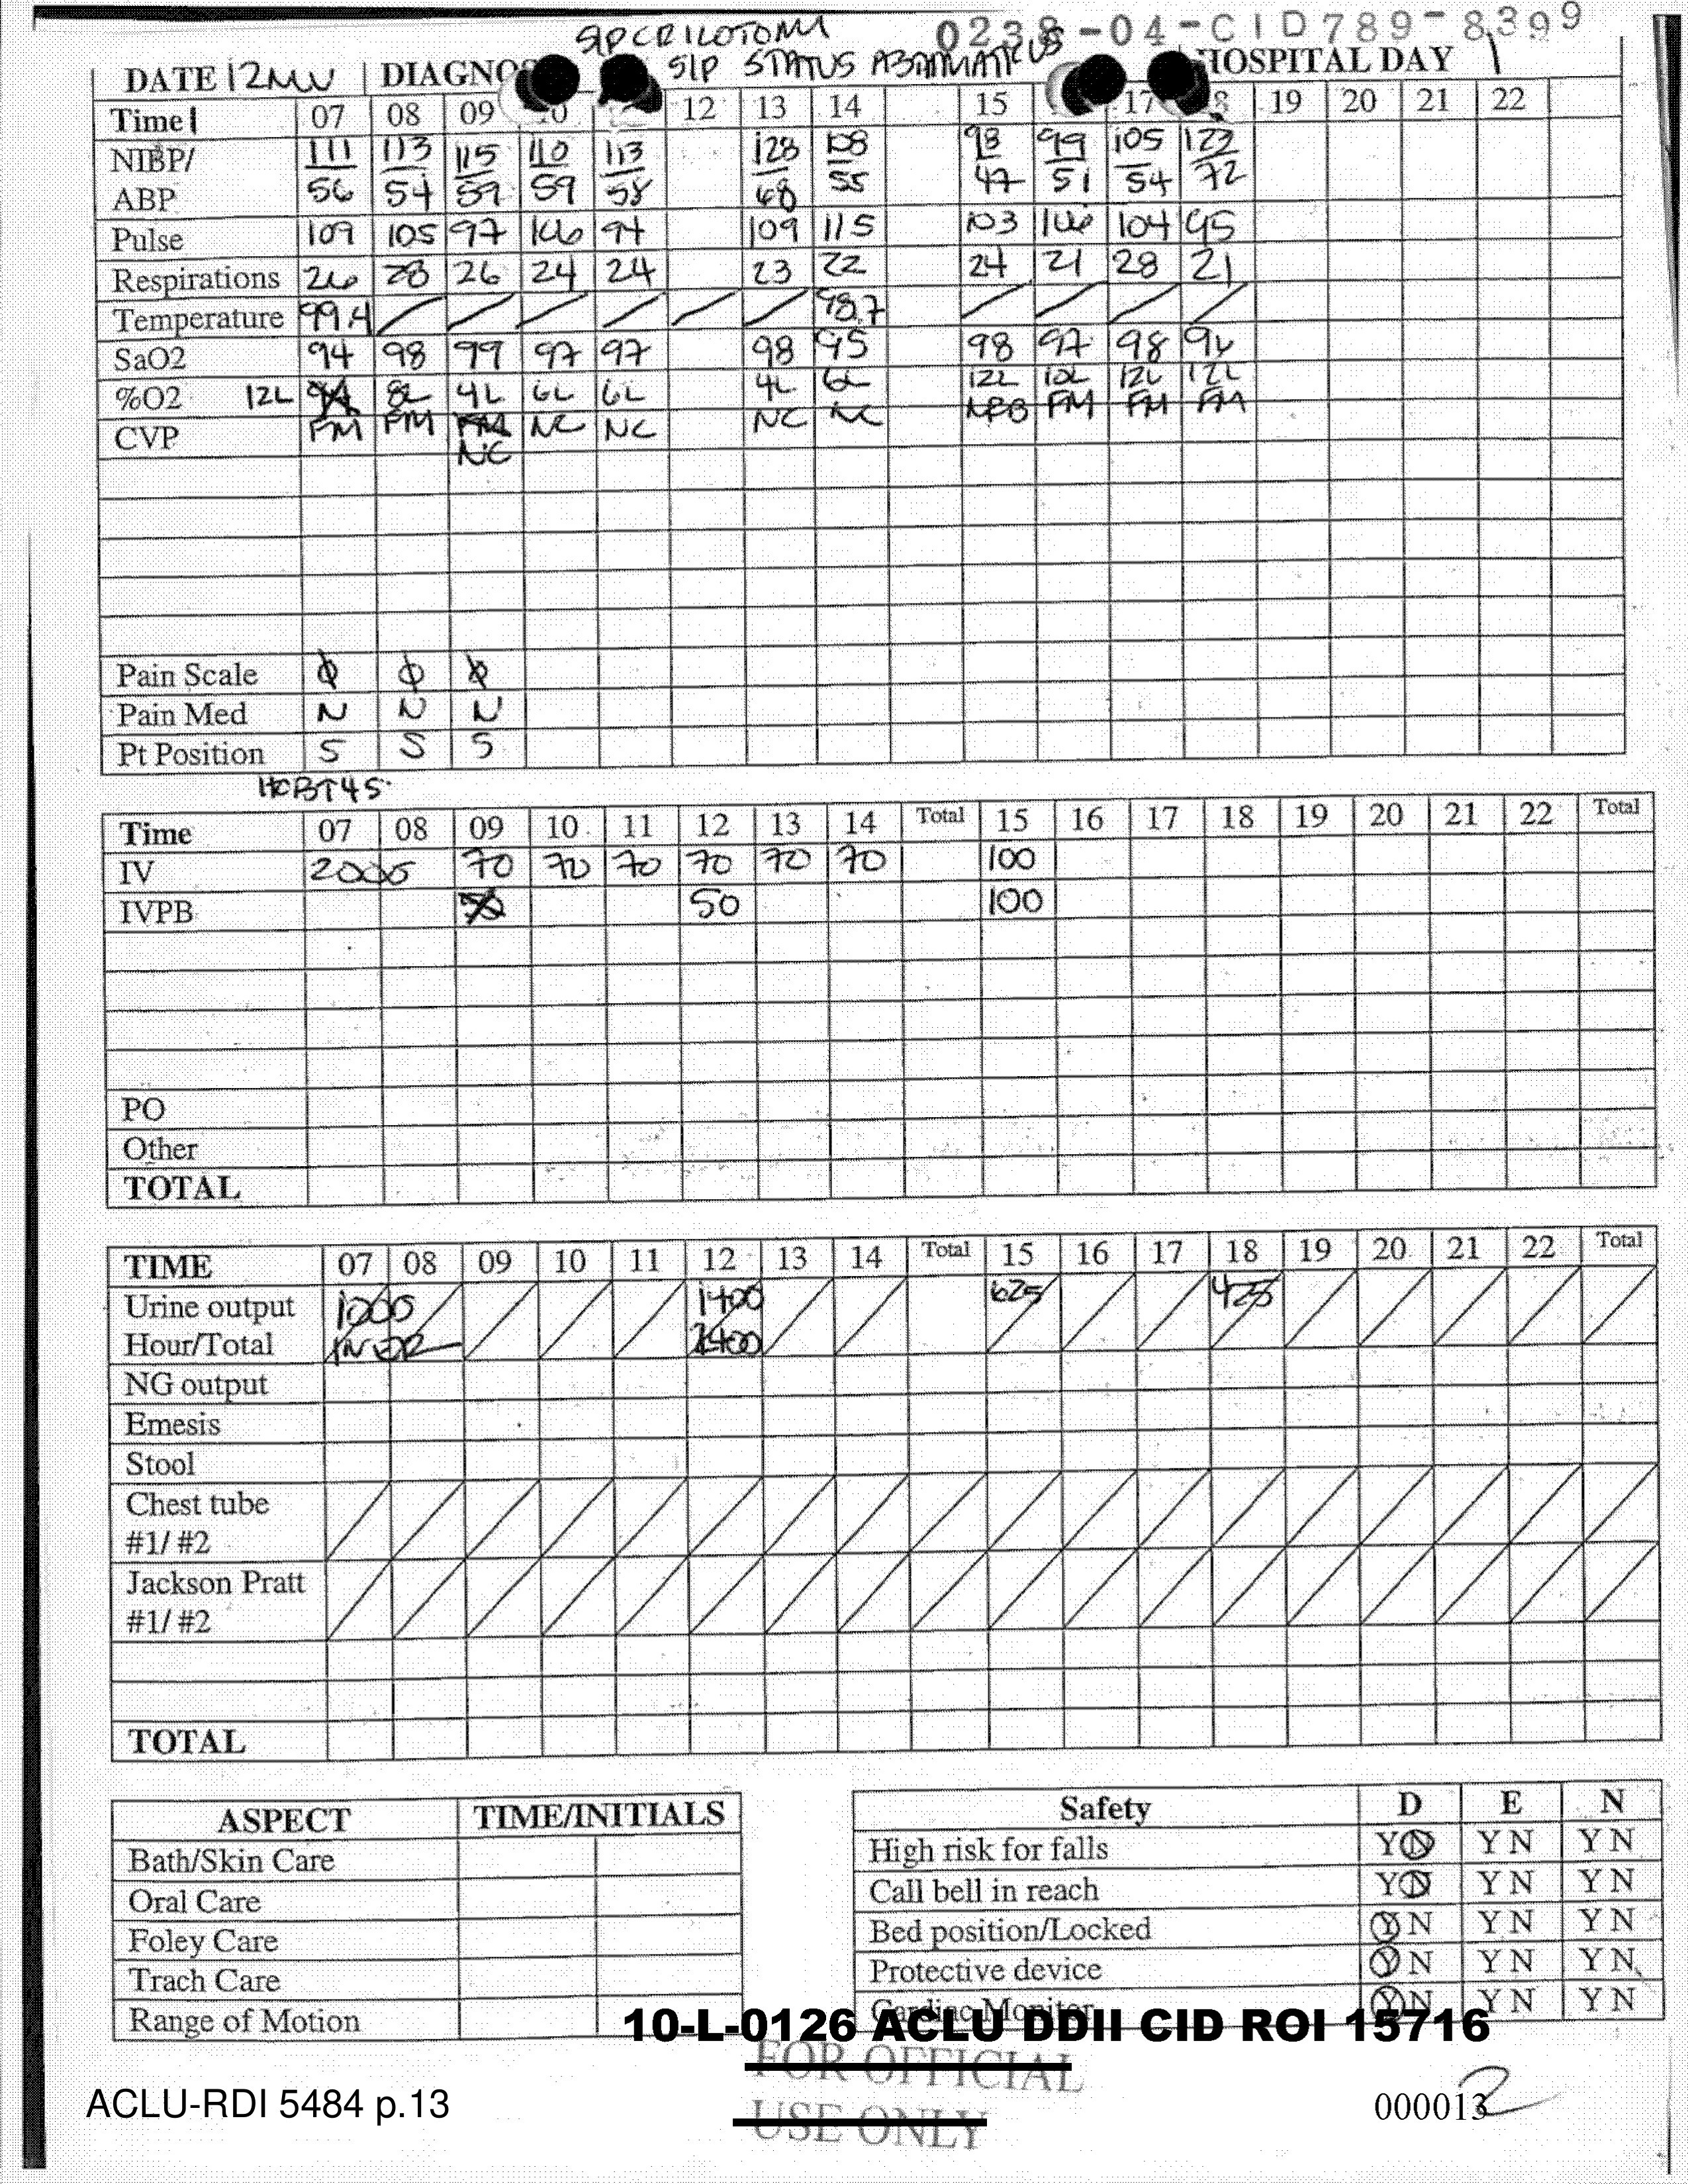 0238-04-CID789-8399
S/P STATUS
DATE 12 DIAGNO HOSPITAL DAY 1
Time 07 08 09 12 13 14 15 17 19 20 21 22
NIBP/ 111 113 115 110 113 128 108 93 99 105 122
ABP 56 54 59 59 58 68 55 47 51 54 72
Pulse 109 105 97 106 94 109 115 103 106 104 95
Respirations 26 28 26 24 24 23 22 24 21 28 21
Temperature 99.4 98.7
SaO2 94 98 99 97 97 98 95 98 97 98
%O2 12L 8L 4L 6L 6L 4L 6L 12L 10L 12L 12L
CVP FM FM FM NC NC NC NC NRB FM FM FM
NC
Pain Scale ϕ ϕ ϕ
Pain Med N N N
Pt Position S S S
Time 07 08 09 10 11 12 13 14 Total 15 16 17 18 19 20 21 22 Total
IV 2000 70 70 70 70 70 70 100
IVPB 50 100
PO
Other
TOTAL
TIME 07 08 09 10 11 12 13 14 Total 15 16 17 18 19 20 21 22 Total
Urine output 1000 1400 625 425
Hour/Total 2400
NG output
Emesis
Stool
Chest tube
#1/ #2
Jackson Pratt
#1/ #2
TOTAL
ASPECT TIME/INITIALS
Bath/Skin Care
Oral Care
Foley Care
Trach Care
Range of Motion
Safety D E N
High risk for falls Y N Y N Y N
Call bell in reach Y N Y N Y N
Bed position/Locked Y N Y N Y N
Protective device Y N Y N Y N
Cardiac Monitor Y N Y N Y N
10-L-0126 ACLU DDII CID ROI 15716
FOR OFFICIAL
USE ONLY
ACLU-RDI 5484 p.13
000013